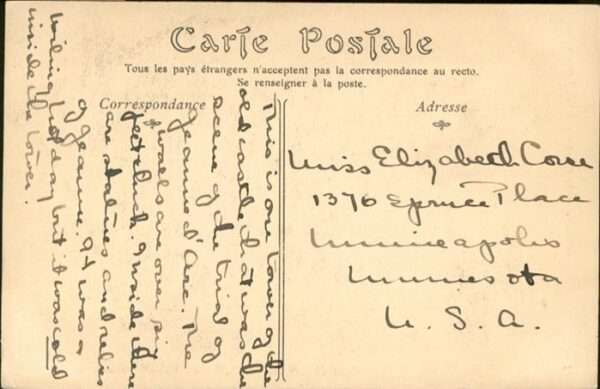 Carte Postale
Tous les pays étrangers n'acceptent pas la correspondance au recto.
Se renseigner à la poste.
Correspondance
Adresse
This is one tower of the
old castle that was the
scene of the trial of
Jeanne d'Arc. The
walls are over six
feet thick. Inside there
are statues and relics
of Jeanne. It was a
broiling hot day but it was cold
inside the tower.
Miss Elizabeth Corse
1376 Spruce Place
Minneapolis
Minnesota
U. S. A.